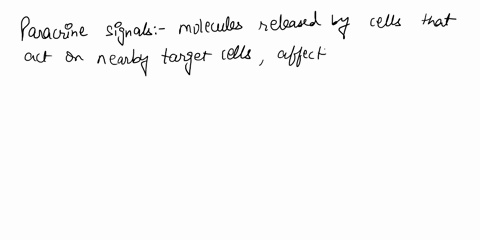 Paracrine signals:- molecules released by cells that
act on nearby target cells, affect